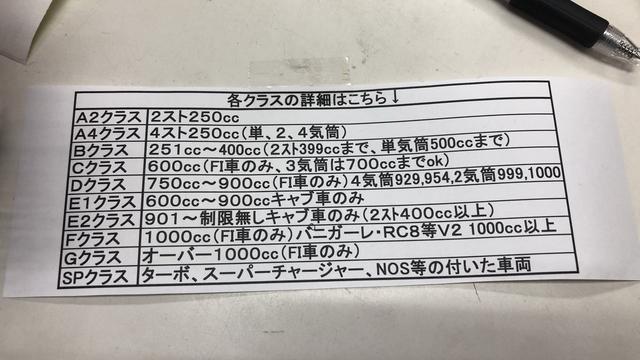 各クラスの詳細はこちら↓
A2クラス 2スト250cc
A4クラス 4スト250cc(単、2、4気筒)
Bクラス 251cc～400cc(2スト399ccまで、単気筒500ccまで)
Cクラス 600cc(FI車のみ、3気筒は700ccまでok)
Dクラス 750cc～900cc(FI車のみ)4気筒929,954,2気筒999,1000
E1クラス 600cc～900ccキャブ車のみ
E2クラス 901～制限無しキャブ車のみ(2スト400cc以上)
Fクラス 1000cc(FI車のみ)パニガーレ・RC8等V2 1000cc以上
Gクラス オーバー1000cc(FI車のみ)
SPクラス ターボ、スーパーチャージャー、NOS等の付いた車両